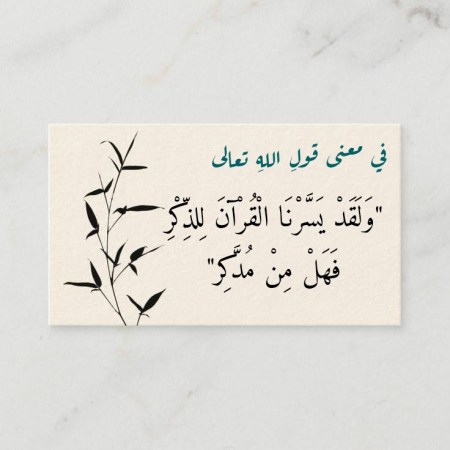 في معنى قولِ اللهِ تعالى
"وَلَقَدْ يَسَّرْنَا الْقُرْآنَ لِلذِّكْرِ
فَهَلْ مِنْ مُدَّكِر"